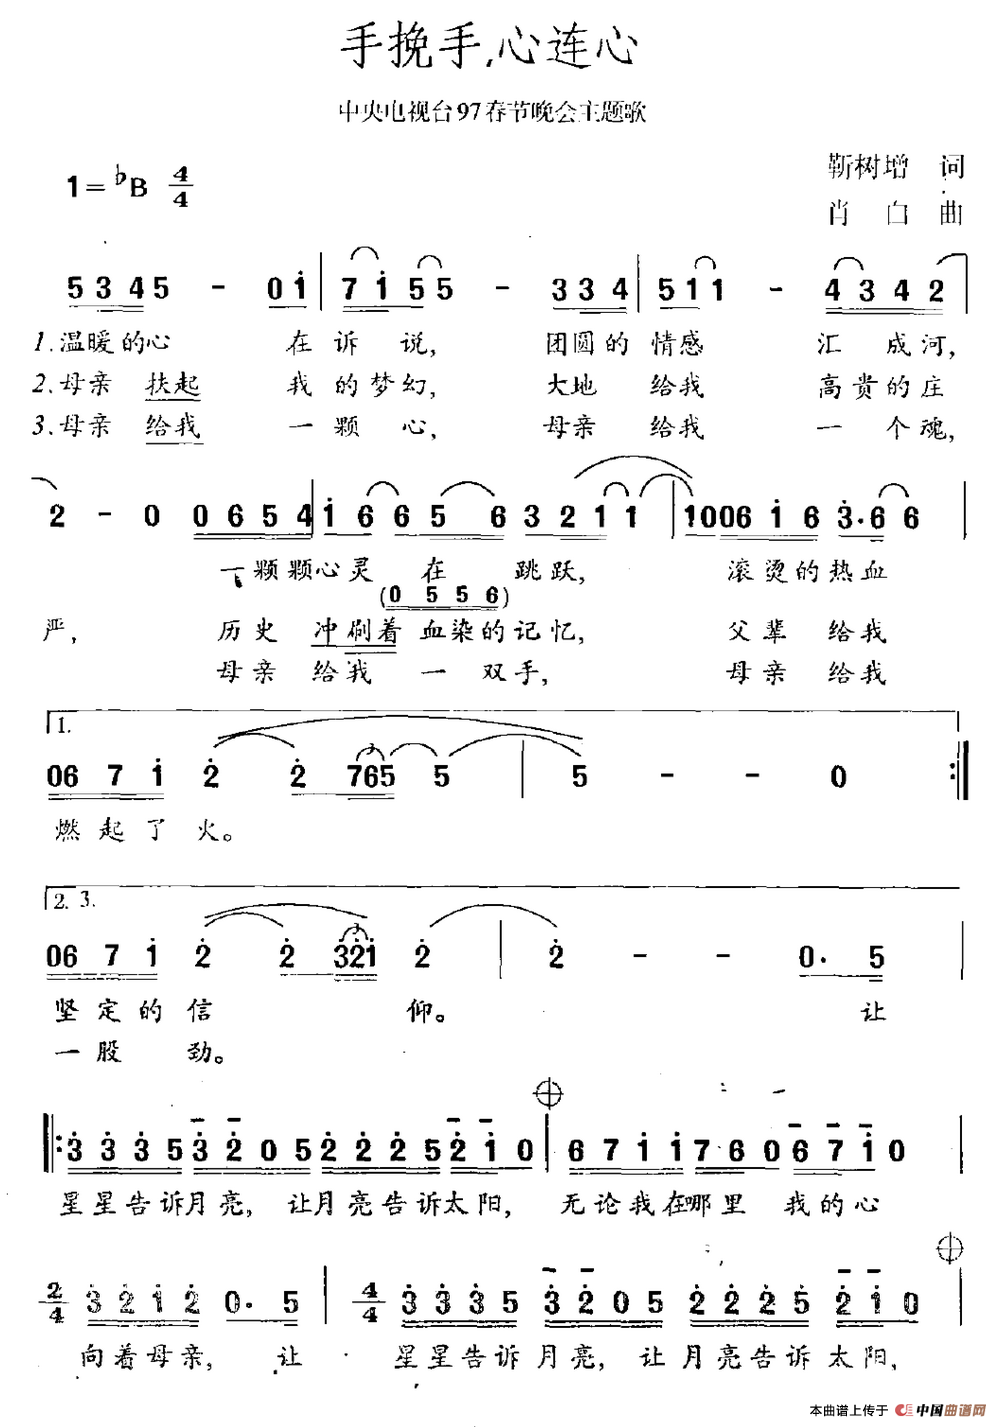 手挽手,心连心
中央电视台97春节晚会主题歌
靳树增 词
1=♭B 4/4
肖白曲
5 3 4 5 - 0 1 7 1 5 5 - 3 3 4 5 1 1 - 4 3 4 2
1.温暖的心 在诉说, 团圆的情感 汇成河,
2.母亲扶起 我的梦幻, 大地给我 高贵的庄
3.母亲给我 一颗心, 母亲给我 一个魂,
2 - 0 0 6 5 4 1 6 6 5 6 3 2 1 1 1 0 0 6 1 6 3·6 6
一颗颗心灵在跳跃, 滚烫的热血
(0 5 5 6)
严, 历史冲刷着血染的记忆, 父辈给我
母亲给我一双手, 母亲给我
1.
0 6 7 1 2 2 7 6 5 5 5 - - 0
3
燃起了火。
2. 3.
0 6 7 1 2 2 3 2 1 2 2 - - 0· 5
3
坚定的信仰。 让
一股劲。
3 3 3 5 3 2 0 5 2 2 2 5 2 1 0 6 7 1 1 7 6 0 6 7 1 0
星星告诉月亮, 让月亮告诉太阳, 无论我在哪里 我的心
2/4 3 2 1 2 0· 5 4/4 3 3 3 5 3 2 0 5 2 2 2 5 2 1 0
向着母亲, 让 星星告诉月亮, 让月亮告诉太阳,
本曲谱上传于 中国曲谱网